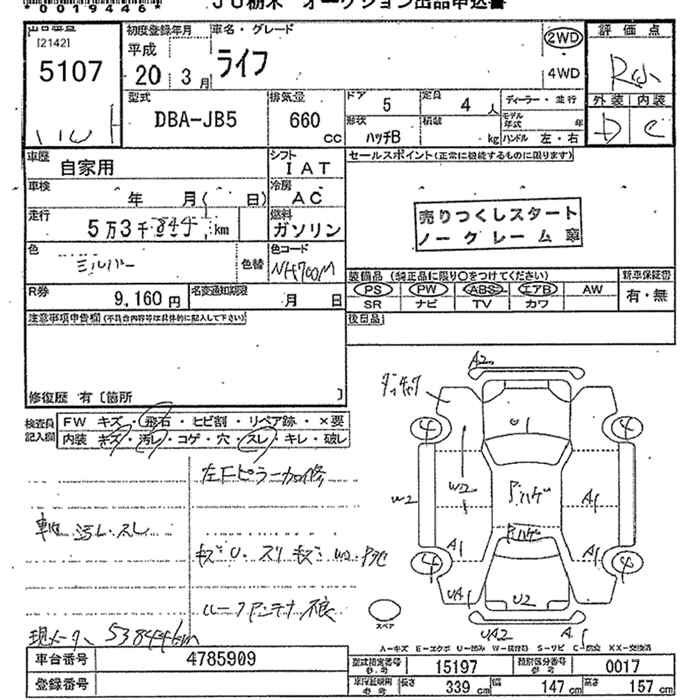 *0019446*
JU栃木 オークション出品申込書
[2142]
5107
初度登録年月
平成
20 年 3 月
車名・グレード
ライフ
2WD
4WD
評価点
外装 内装
D C
型式
DBA-JB5
排気量
660
cc
ドア
5
定員
4 人
形状
ハッチB
積載
kg
ディーラー・並行
モデル年式 年
ハンドル 左・右
車歴
自家用
シフト
IAT
セールスポイント(正常に機能するものに限ります)
車検
年 月( 日)
冷房
AC
売りつくしスタート
ノークレーム
走行
5万3千844 km
燃料
ガソリン
色
シルバー
色替
色コード
NH700M
R券
9,160 円
名変通知期限
月 日
装備品 (純正品に限り○をつけてください)
PS PW ABS エアB AW
SR ナビ TV カワ
新車保証書
有・無
注意事項申告欄(不具合内容等は具体的に記入して下さい)
後日品
修復歴 有〔箇所 〕
検査員記入欄
FW キズ・飛石・ヒビ割・リペア跡・×要
内装 キズ・汚レ・コゲ・穴・スレ・キレ・破レ
左Fピラー加修
車内 汚レ・スレ
キズU・スリキズ
ルーフアンテナ
現メーター 53844km
A2
U1
4
4
W2
W2
A1
A1
A1
4
4
UA1
U2
UA2
A1
スペア
A-キズ E-エクボ U-凹み W-補修跡 S-サビ C-腐食 XX-交換済
車台番号
4785909
登録番号
型式指定番号
参考
15197
類別区分番号
参考
0017
車両証明用
参考
長さ
339 cm
幅
147 cm
高さ
157 cm